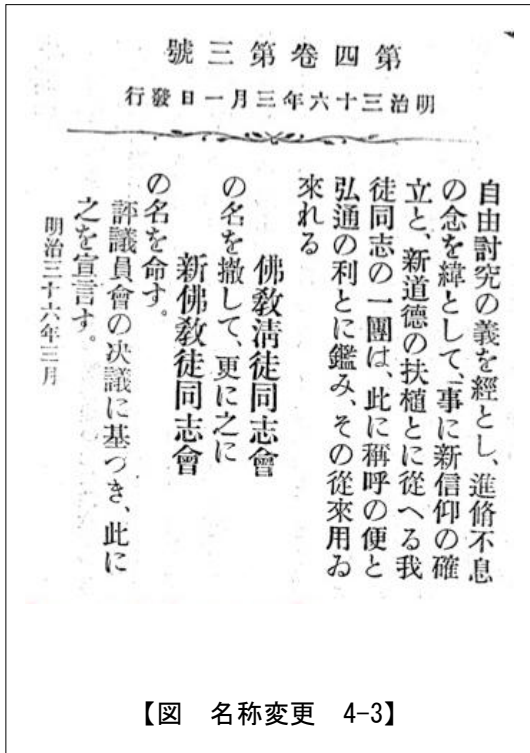 第四卷第三號
明治三十六年三月一日發行
自由討究の義を經とし、進脩不息
の念を緯として、事に新信仰の確
立と、新道德の扶植とに從へる我
徒同志の一團は、此に稱呼の便と
弘通の利とに鑑み、その從來用ゐ
來れる
佛敎淸徒同志會
の名を撤して、更に之に
新佛敎徒同志會
の名を命す。
評議員會の决議に基づき、此に
之を宣言す。
明治三十六年三月
【図 名称変更 4-3】